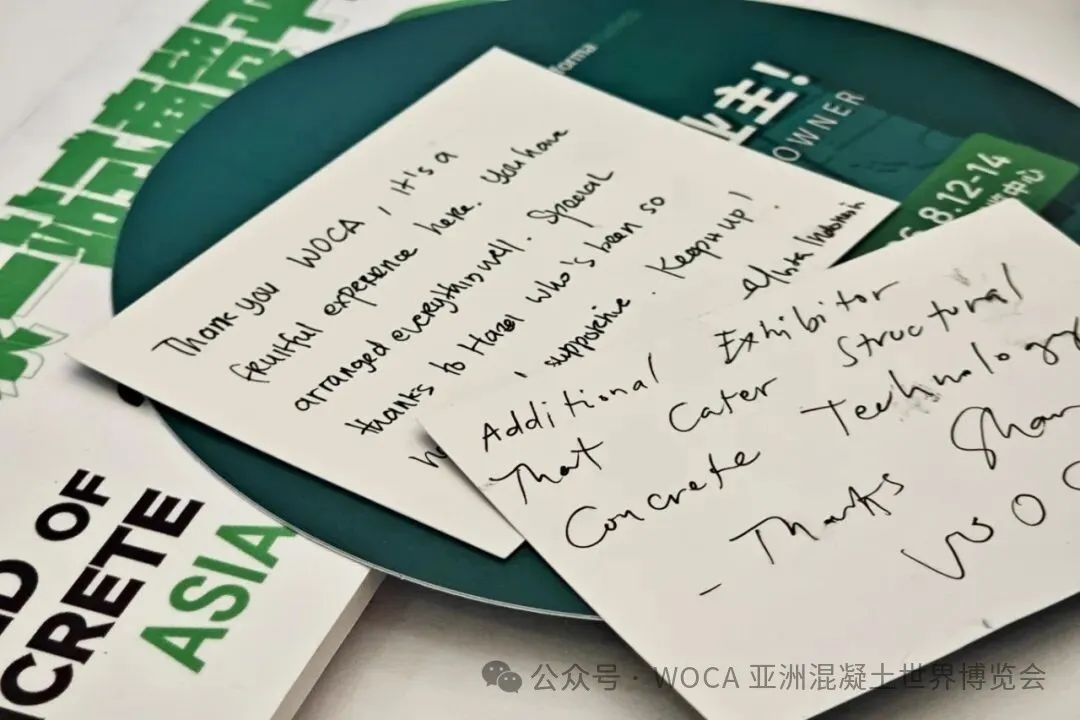 一站式商贸平
forma
业主!
OWNER
8.12-14
Thank you WOCA, it's a
fruitful experience here. You have
arranged everything well. Special
thanks to Hazel who's been so
supportive. Keep it up!
Indonesia
Additional Exhibitor
That Cater Structural
Concrete Technology
- Thanks
WOC
OF
CRETE
ASIA
公众号 · WOCA 亚洲混凝土世界博览会